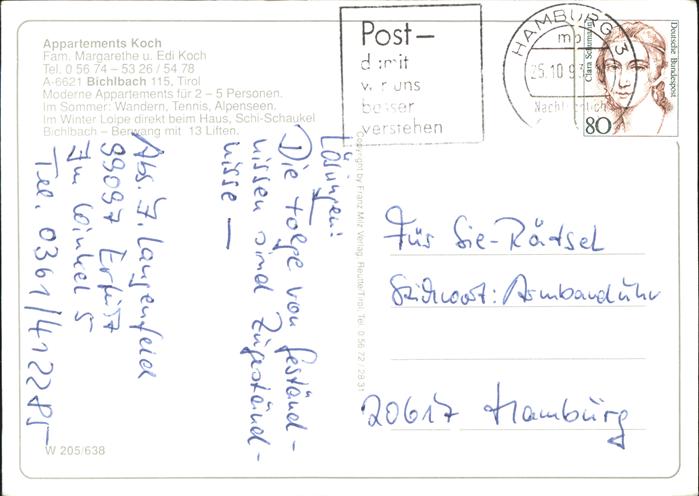 Appartements Koch
Fam. Margarethe u. Edi Koch
Tel. 0 56 74 – 53 26 / 54 78
A-6621 Bichlbach 115, Tirol
Moderne Appartements für 2 – 5 Personen.
Im Sommer: Wandern, Tennis, Alpenseen.
Im Winter Loipe direkt beim Haus, Schi-Schaukel
Bichlbach – Berwang mit 13 Liften.
Post–
damit
wir uns
besser
verstehen
HAMBURG 3
mp
25.10.93
Clara Schumann
Deutsche Bundespost
80
Lösungen:
Die Folge von Geständ-
nissen sind Zugeständ-
nisse —
Abs. J. Langenfeld
99097 Erfurt
Im Winkel 5
Tel. 0361/412285
Copyright by Franz Milz Verlag, Reutte/Tirol, Tel. 0 56 72 / 28 31
Für Sie-Rätsel
Stichwort: Armbanduhr
20617 Hamburg
W 205/638